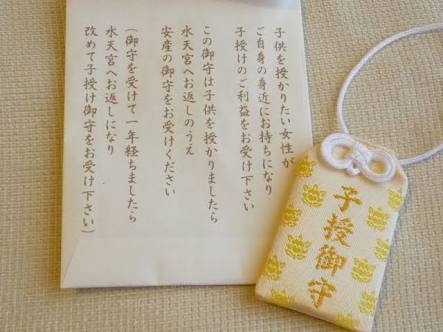 子供を授かりたい女性が
ご自身の身近にお持ちになり
子授けのご利益をお受け下さい
この御守は子供を授かりましたら
水天宮へお返しのうえ
安産の御守をお受けください
(御守を受けて一年経ちましたら
水天宮へお返しになり
改めて子授け御守をお受け下さい)
子授御守